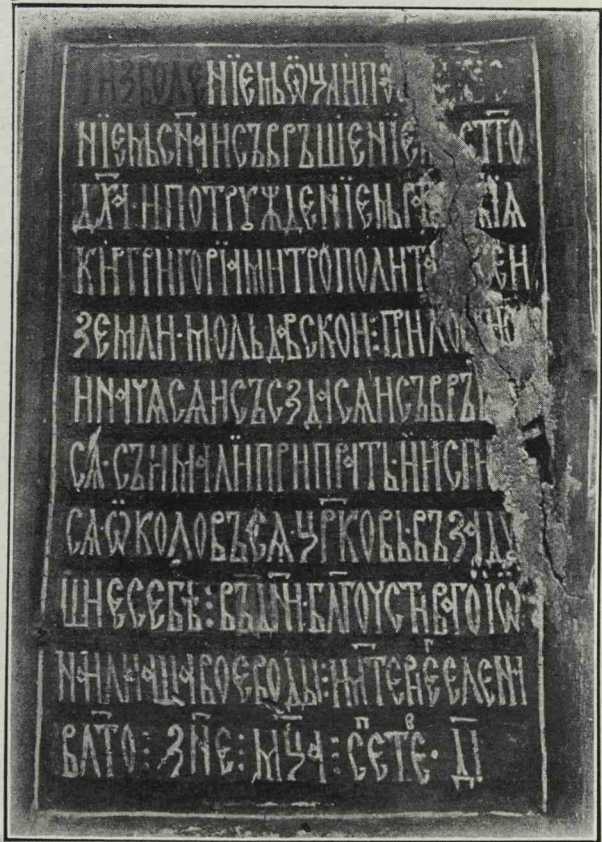 ИЗВОЛЕНЇЕМЬ Ѿ҃ЦА И ПО
НЇЕМЬ СН҃А И СЪВРЪШЕНЇЕ СТ҃ГО
ДХ҃А · И ПОТРУЖДЕНЇЕМЬ
КИР ГРИГОРЇА МИТРОПОЛИТ
ЗЕМЛИ · МОЛЬДАВСКОИ :
И НАЧАСѦ И СЪСЗДАСѦ И СЪВРЪ
СѦ · СЪИ МАЛЇИ ПРИПРАТЬ · И ИСПИ
СѦ ѠКОЛО ВЪСѦ · ЦР҃КОВЬ · ВЪ ЗАДУ
ШИЕ СЕБѢ : ВЪ ДН҃И · БЛ҃ГОУСТИВАГО ІѠ
НА ИЛИАША ВОЕВОДЫ : И МТ҃ЕРЕ ЕГ ЕЛЕНИ
ВЛТ҃О : ЗН҃Е : МЦ҃А : СЕПТЕВ · ДІ҃